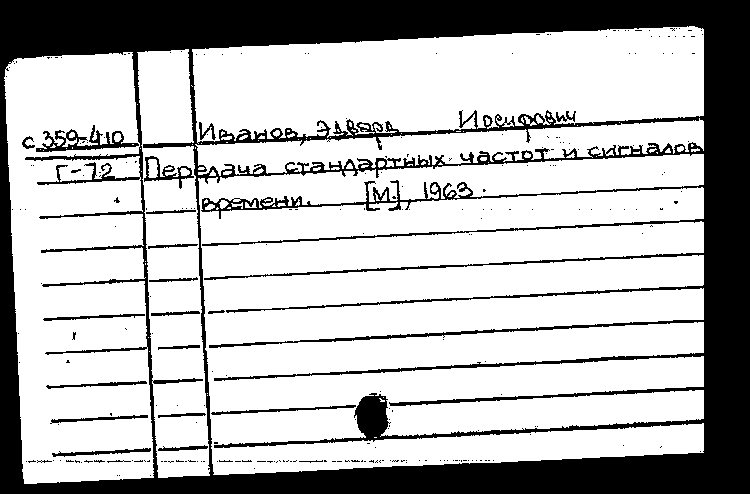 Иванов, Эдвард Иосифович
с 359-410
Г-72 Передача стандартных частот и сигналов
времени. [М.], 1963.